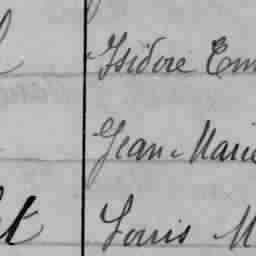 Isidore Em
Jean-Marie
Louis M